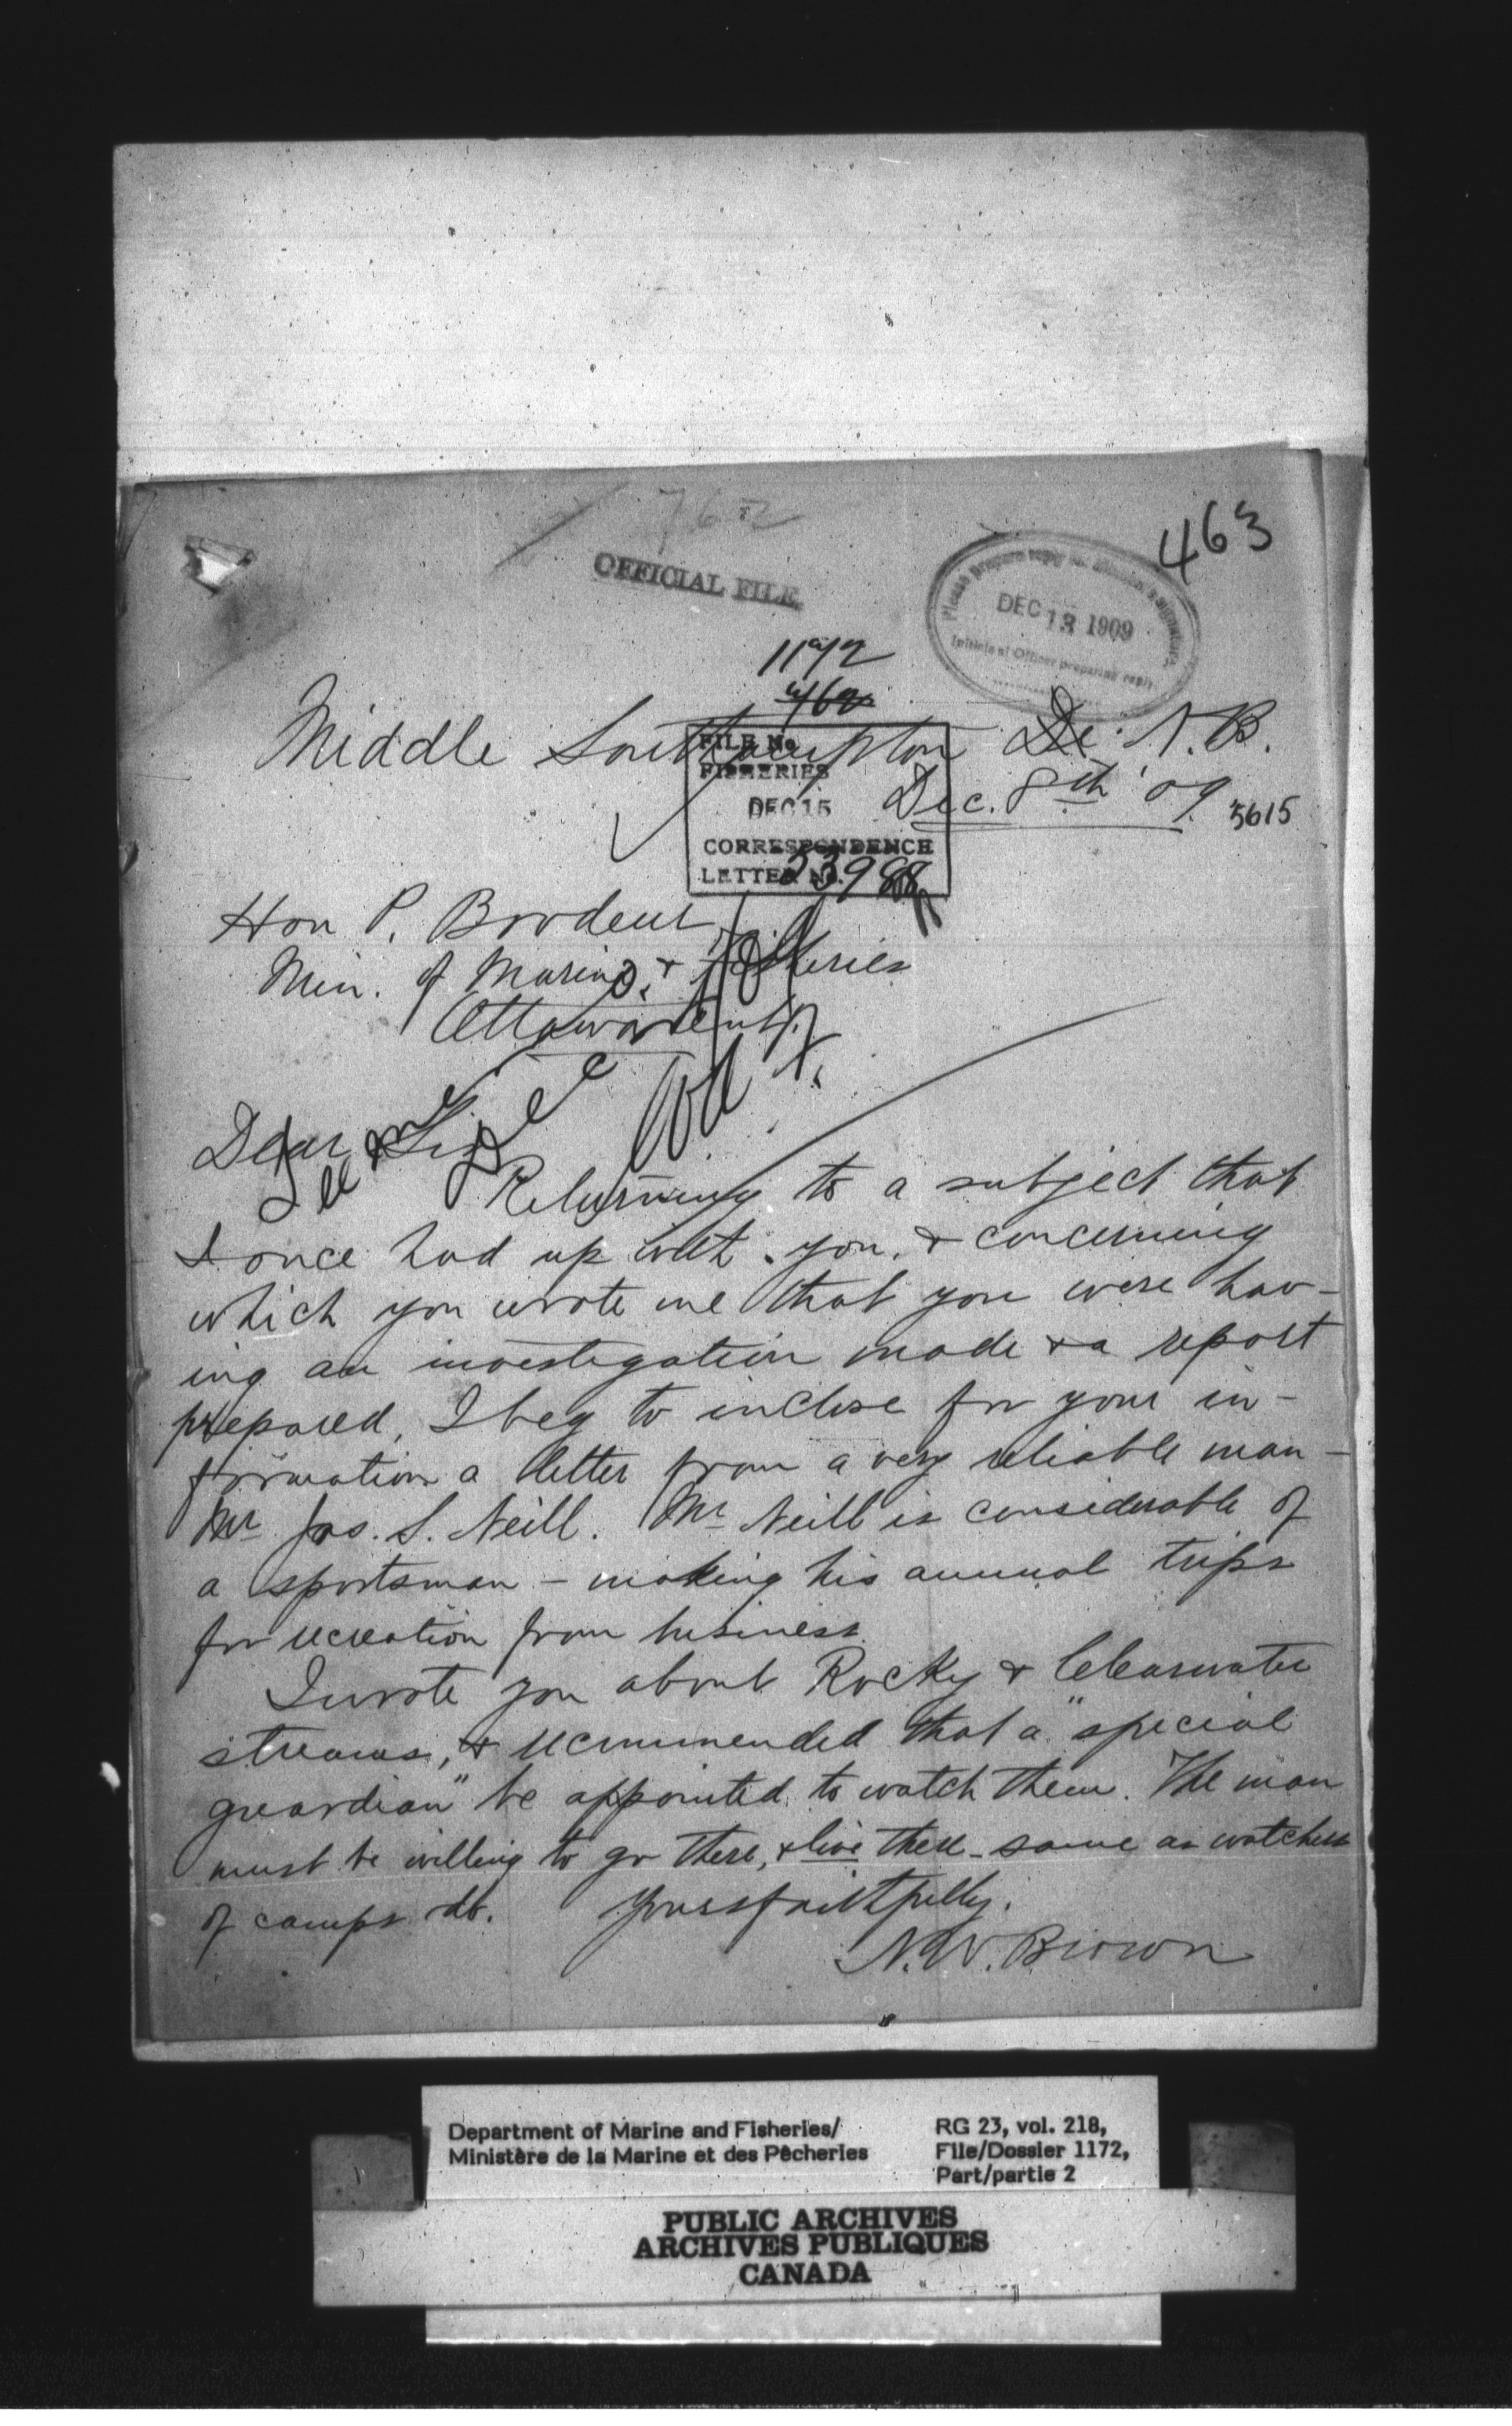 762
463
OFFICIAL FILE.
Please prepare reply for Minister's signature.
DEC 13 1909
Initials of Officer preparing reply
1172
462
Middle Southampton De N.B.
FILE No.
FISHERIES
DEC 15
CORRESPONDENCE
LETTER No. 23988
Dec. 8th '09
5615
Hon P. Brodeur
Min. of Marine & Fisheries
Ottawa Ont.
Dear Sir
Returning to a subject that
I once had up with you, & concerning
which you wrote me that you were hav-
ing an investigation made & a report
prepared, I beg to inclose for your in-
formation a letter from a very reliable man -
Mr Jas. S. Neill. Mr Neill is considerable of
a sportsman - making his annual trips
for recreation from business.
I wrote you about Rocky & Clearwater
streams, & recommended that a "special
guardian" be appointed to watch them. The man
must be willing to go there, & live there - same as watchers
of camps do. Yours faithfully.
N.W. Brown
Department of Marine and Fisheries/
Ministère de la Marine et des Pêcheries
RG 23, vol. 218,
File/Dossier 1172,
Part/partie 2
PUBLIC ARCHIVES
ARCHIVES PUBLIQUES
CANADA